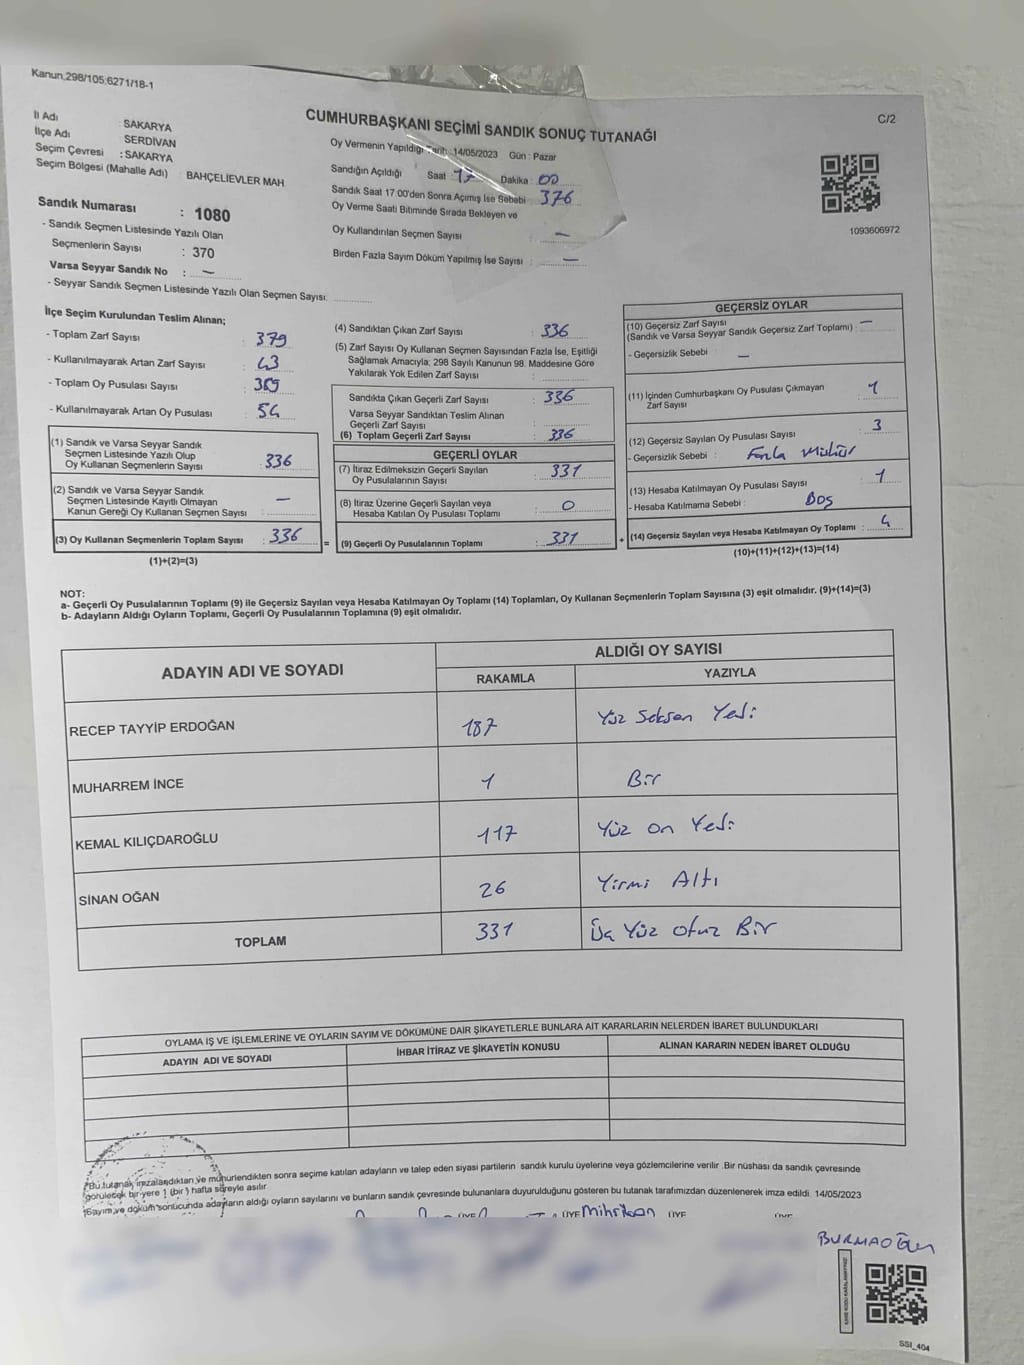 Kanun.298/105;6271/18-1
C/2
CUMHURBAŞKANI SEÇİMİ SANDIK SONUÇ TUTANAĞI
İl Adı : SAKARYA
İlçe Adı : SERDİVAN
Seçim Çevresi : SAKARYA
Seçim Bölgesi (Mahalle Adı) BAHÇELİEVLER MAH
Sandık Numarası : 1080
- Sandık Seçmen Listesinde Yazılı Olan
Seçmenlerin Sayısı : 370
Varsa Seyyar Sandık No : —
- Seyyar Sandık Seçmen Listesinde Yazılı Olan Seçmen Sayısı:
Oy Vermenin Yapıldığı Tarih :14/05/2023 Gün : Pazar
Sandığın Açıldığı Saat : 17 Dakika : 00
Sandık Saat 17:00'den Sonra Açımış İse Sebebi : 376
Oy Verme Saati Bitiminde Sırada Bekleyen ve
Oy Kullandırılan Seçmen Sayısı : —
Birden Fazla Sayım Döküm Yapılmış İse Sayısı : —
1093606972
İlçe Seçim Kurulundan Teslim Alınan;
- Toplam Zarf Sayısı : 379
- Kullanılmayarak Artan Zarf Sayısı : 43
- Toplam Oy Pusulası Sayısı :
- Kullanılmayarak Artan Oy Pusulası : 54
(1) Sandık ve Varsa Seyyar Sandık
Seçmen Listesinde Yazılı Olup
Oy Kullanan Seçmenlerin Sayısı : 336
(2) Sandık ve Varsa Seyyar Sandık
Seçmen Listesinde Kayıtlı Olmayan
Kanun Gereği Oy Kullanan Seçmen Sayısı : —
(3) Oy Kullanan Seçmenlerin Toplam Sayısı : 336
(1)+(2)=(3)
=
(4) Sandıktan Çıkan Zarf Sayısı : 336
(5) Zarf Sayısı Oy Kullanan Seçmen Sayısından Fazla İse, Eşitliği
Sağlamak Amacıyla; 298 Sayılı Kanunun 98. Maddesine Göre
Yakılarak Yok Edilen Zarf Sayısı :
Sandıkta Çıkan Geçerli Zarf Sayısı : 336
Varsa Seyyar Sandıktan Teslim Alınan
Geçerli Zarf Sayısı :
(6) Toplam Geçerli Zarf Sayısı : 336
GEÇERLİ OYLAR
(7) İtiraz Edilmeksizin Geçerli Sayılan
Oy Pusulalarının Sayısı : 331
(8) İtiraz Üzerine Geçerli Sayılan veya
Hesaba Katılan Oy Pusulası Toplamı : 0
(9) Geçerli Oy Pusulalarının Toplamı : 331
+
GEÇERSİZ OYLAR
(10) Geçersiz Zarf Sayısı : —
(Sandık ve Varsa Seyyar Sandık Geçersiz Zarf Toplamı)
- Geçersizlik Sebebi : —
(11) İçinden Cumhurbaşkanı Oy Pusulası Çıkmayan
Zarf Sayısı : 1
(12) Geçersiz Sayılan Oy Pusulası Sayısı : 3
- Geçersizlik Sebebi : Fazla Mühür
(13) Hesaba Katılmayan Oy Pusulası Sayısı : 1
- Hesaba Katılmama Sebebi : Boş
(14) Geçersiz Sayılan veya Hesaba Katılmayan Oy Toplamı : 4
(10)+(11)+(12)+(13)=(14)
NOT:
a- Geçerli Oy Pusulalarının Toplamı (9) ile Geçersiz Sayılan veya Hesaba Katılmayan Oy Toplamı (14) Toplamları, Oy Kullanan Seçmenlerin Toplam Sayısına (3) eşit olmalıdır. (9)+(14)=(3)
b- Adayların Aldığı Oyların Toplamı, Geçerli Oy Pusulalarının Toplamına (9) eşit olmalıdır.
ADAYIN ADI VE SOYADI
ALDIĞI OY SAYISI
RAKAMLA YAZIYLA
RECEP TAYYİP ERDOĞAN 187 Yüz Seksen Yedi
MUHARREM İNCE 1 Bir
KEMAL KILIÇDAROĞLU 117 Yüz on Yedi
SİNAN OĞAN 26 Yirmi Altı
TOPLAM 331 Üç Yüz Otuz Bir
OYLAMA İŞ VE İŞLEMLERİNE VE OYLARIN SAYIM VE DÖKÜMÜNE DAİR ŞİKAYETLERLE BUNLARA AİT KARARLARIN NELERDEN İBARET BULUNDUKLARI
ADAYIN ADI VE SOYADI İHBAR İTİRAZ VE ŞİKAYETİN KONUSU ALINAN KARARIN NEDEN İBARET OLDUĞU
*Bu tutanak imzalandıktan ve mühürlendikten sonra seçime katılan adayların ve talep eden siyasi partilerin sandık kurulu üyelerine veya gözlemcilerine verilir. Bir nüshası da sandık çevresinde
görülecek bir yere 1 (bir) hafta süreyle asılır.
*Sayım ve döküm sonucunda adayların aldığı oyların sayılarını ve bunların sandık çevresinde bulunanlara duyurulduğunu gösteren bu tutanak tarafımızdan düzenlenerek imza edildi. 14/05/2023
ÜYE ÜYE Mihriban ÜYE ÜYE
BURMAOĞLU
SSI_404